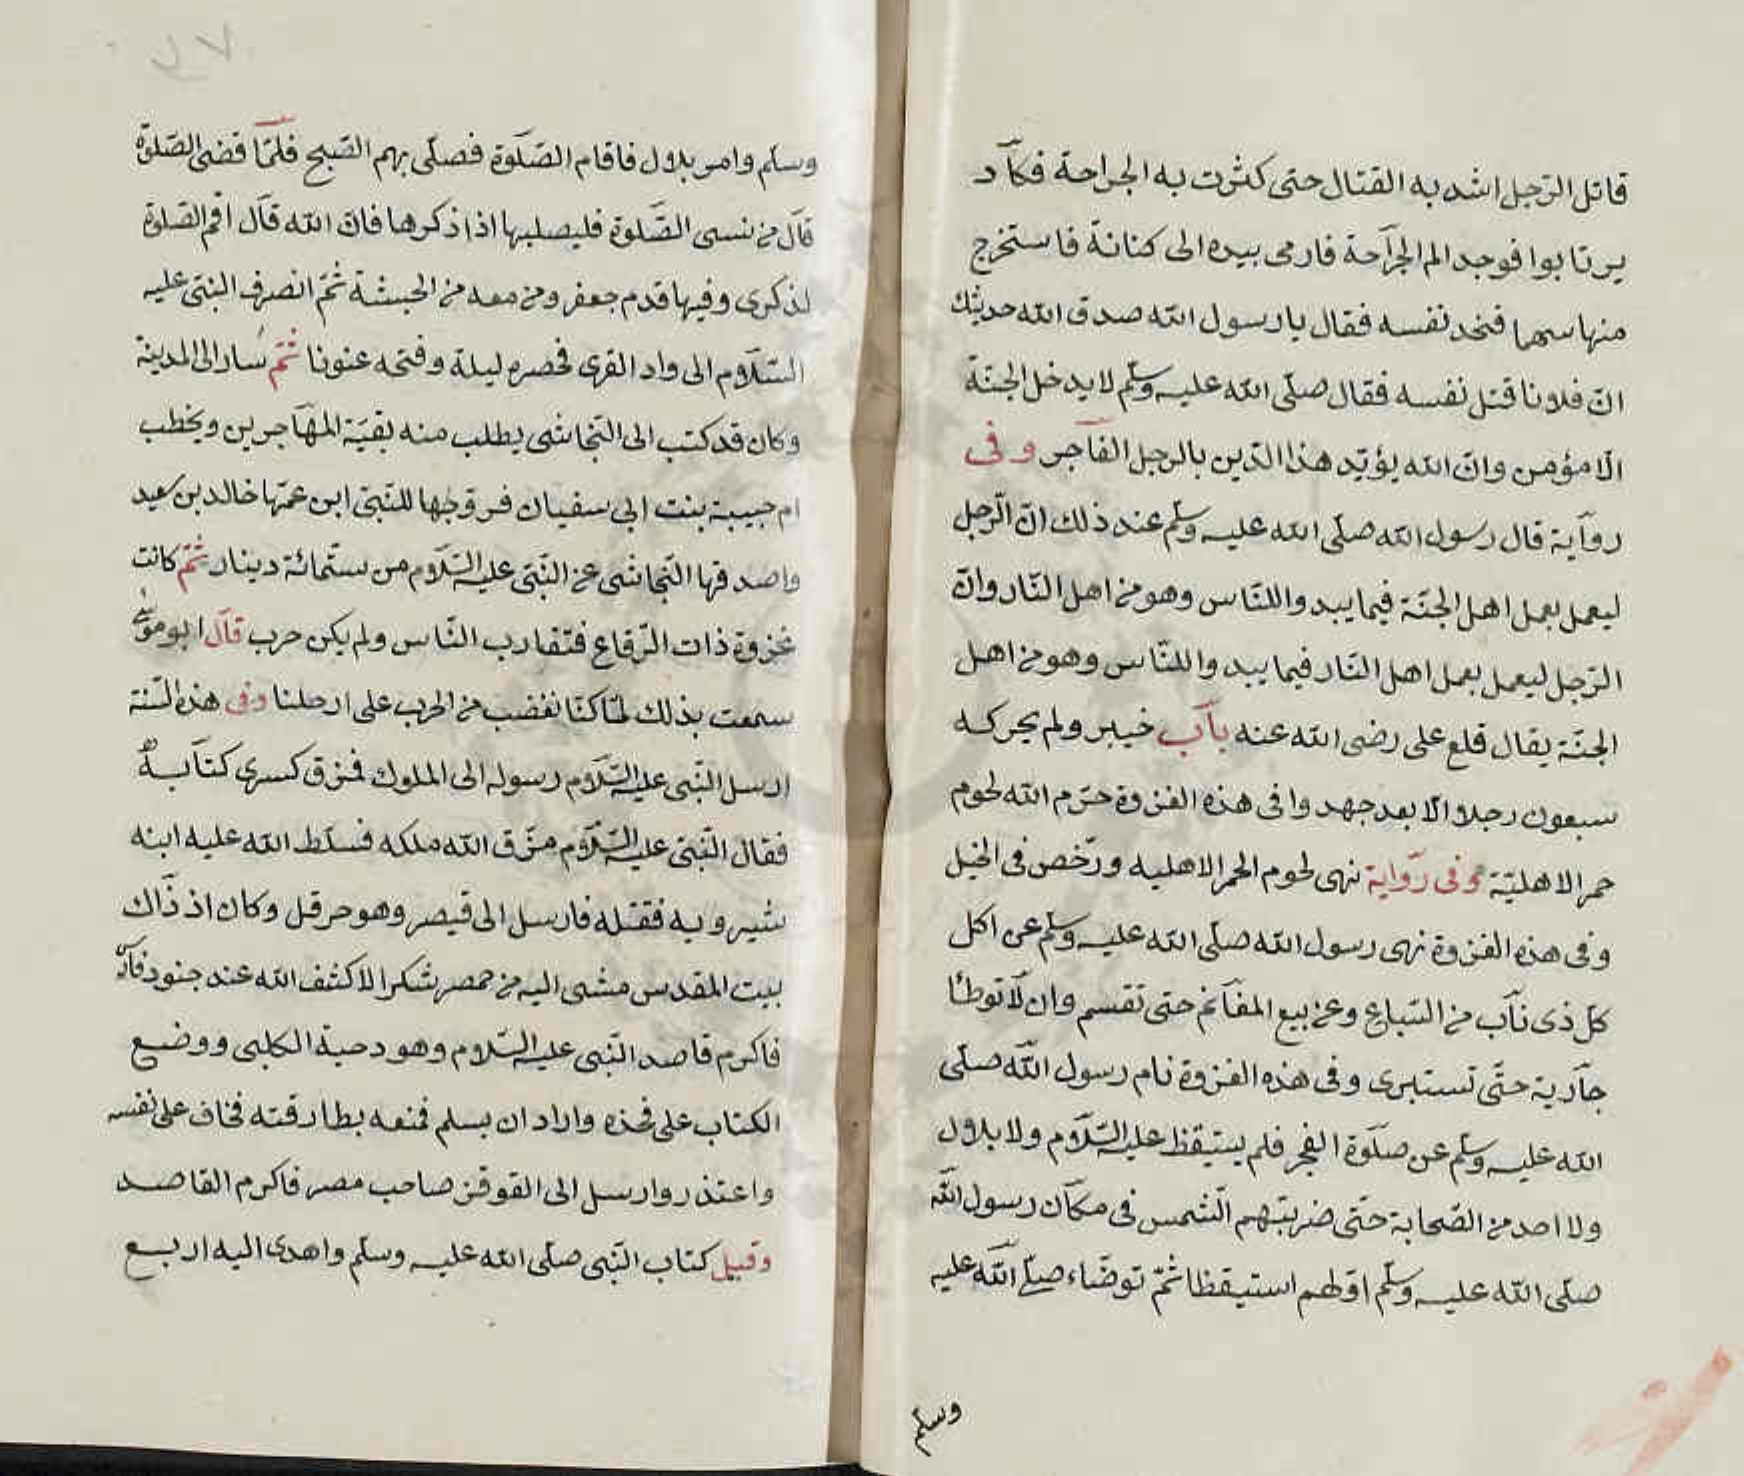 قاتل الرّجل اشد به القتال حتى كثرت به الجراحة فكاد
يرتابوا فوجد الم الجراحة فارمى بيده الى كنانة فاستخرج
منها سهما فنحد نفسه فقال يا رسول الله صدق الله حديثك
انّ فلونا قتل نفسه فقال صلّى الله عليه وسلّم لا يدخل الجنّة
الّا مؤمن وانّ الله يؤيّد هذا الدّين بالرجل الفاجر وفى
روآية قال رسول الله صلّى الله عليه وسلّم عند ذلك انّ الرّجل
ليعمل بعمل اهل الجنّة فيما يبدو اللنّاس وهو من اهل النّار وانّ
الرّجل ليعمل بعمل اهل النّار فيما يبدو اللنّاس وهو من اهل
الجنّة يقال قلع على رضى الله عنه بآب خيبر ولم يحركه
سبعون رجلا الّا بعد جهد وافى هذه الغزوة حرّم الله لحوم
حمر الاهليّة وفى رّواية نهى لحوم الحمر الاهليه ورخّص فى الخيل
وفى هذه الغزوة نهى رسول الله صلّى الله عليه وسلّم عن اكل
كلّ ذى نآب من السّباع وعن بيع المغآنم حتى تقسم وان لا توطئا
جآرية حتّى تستبرى وفى هذه الغزوة نام رسول الله صلّى
الله عليه وسلّم عن صلوة الفجر فلم يستيقظ عليه السّلام ولا بلال
ولا احد من الصّحابة حتّى ضربتهم الشّمس فى مكآن رسول الله
صلّى الله عليه وسلّم اوّلهم استيقظا ثمّ توضّاء صلّى الله عليه
وسلم
وسلّم وامر بلال فاقام الصّلوة فصلّى بهم الصّبح فلمّا قضى الصّلوة
قآل من نسى الصّلوة فليصليها اذا ذكرها فانّ الله قآل اقم الصّلوة
لذكرى وفيها قدم جعفر ومن معه من الحبشة ثمّ انصرف النبّى عليه
السّلام الى واد القرى فحصره ليلة وفتحه عنونا ثمّ سار الى المدينة
وكان قد كتب الى النّجاشى يطلب منه بقيّة المهآجرين ويخطب
ام حبيبة بنت ابى سفيان فزوّجها للنّبىّ ابن عمّها خالد بن سعيد
واصدقها النّجاشى عن النّبىّ عليه السّلام من ستّمائة دينار ثمّ كانت
غزوة ذات الرّقاع فتفارب النّاس ولم يكن حرب قآل ابو موسى
سمعت بذلك لمّا كنّا نغضب من الحرب على ارحلنا وفى هذه السّنة
ارسل النّبى عليه السّلام رسوله الى الملوك فمزق كسرى كتآبه
فقال النّبىّ عليه السّلام مزّق الله ملكه فسلّط الله عليه ابنه
شيرويه فقتله فارسل الى قيصر وهو حرقل وكان اذ ذّاك
ببيت المقدس مشى اليه من حمصر شكرا لاكشف الله عند جنود
فاكرم قاصد النّبى عليه السّلام وهو دحية الكلبى ووضع
الكتاب على فخذه واراد ان يسلم فمنعه بطارقته فخاف على نفسه
واعتذر وارسل الى القوقز صاحب مصر فاكرم القاصد
وقبل كتاب النّبى صلّى الله عليه وسلّم واهدى اليه اربع